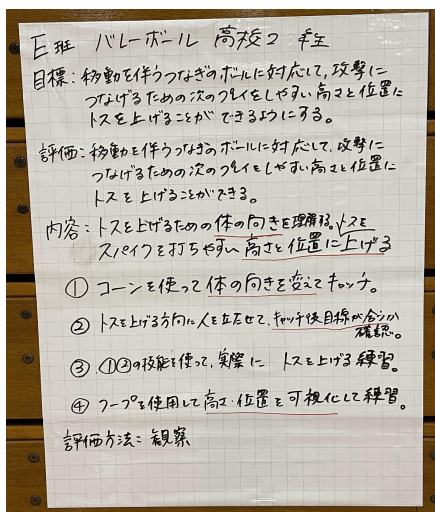 E班 バレーボール 高校2年生
目標:移動を伴うつなぎのボールに対応して,攻撃に
つなげるための次のプレイをしやすい高さと位置に
トスを上げることができるようにする。
評価:移動を伴うつなぎのボールに対応して,攻撃に
つなげるための次のプレイをしやすい高さと位置に
トスを上げることができる。
内容:トスを上げるための体の向きを理解する。トスを
スパイクを打ちやすい高さと位置に上げる
① コーンを使って体の向きを変えてキャッチ。
② トスを上げる方向に人を立たせて,キャッチ後目線が合うか
確認。
③ ①②の技能を使って,実際に トスを上げる練習。
④ フープを使用して高さ・位置を可視化して練習。
評価方法:観察